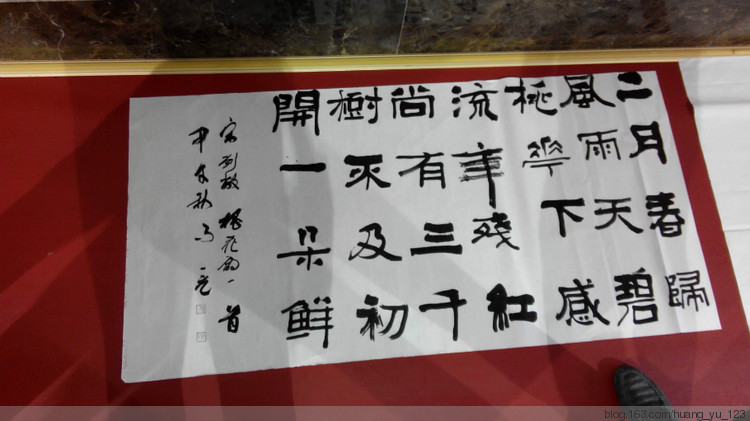 二月春歸
風雨天碧
桃華下感
流年殘紅
尚有三千
樹不及初
開一朵鮮
宋刘敞桃花一首
秋
blog.163.com/huang_yu_123